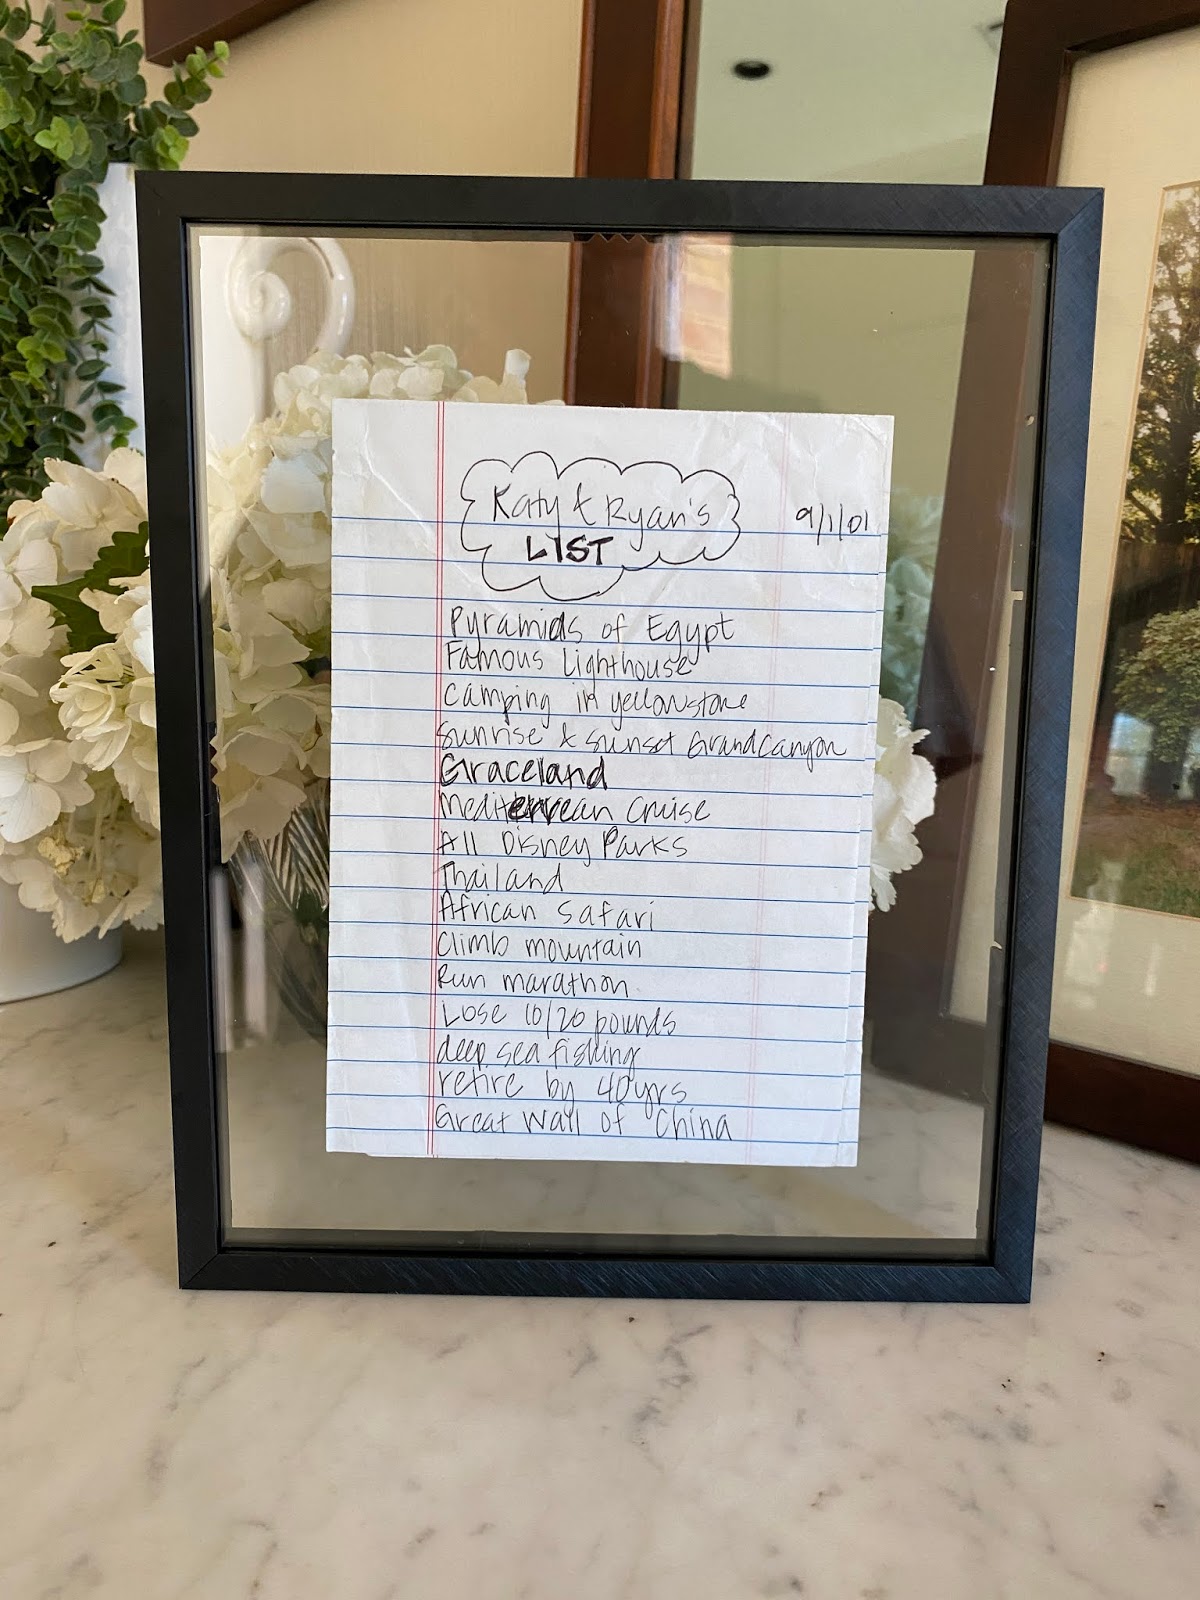 Katy & Ryan's
LIST
9/1/01
Pyramids of Egypt
Famous Lighthouse
camping in yellowstone
sunrise & sunset Grand Canyon
Graceland
Mediterrean Cruise
All Disney Parks
Thailand
African Safari
Climb mountain
Run marathon
Lose 10/20 pounds
deep sea fishing
retire by 40yrs
Great Wall of China